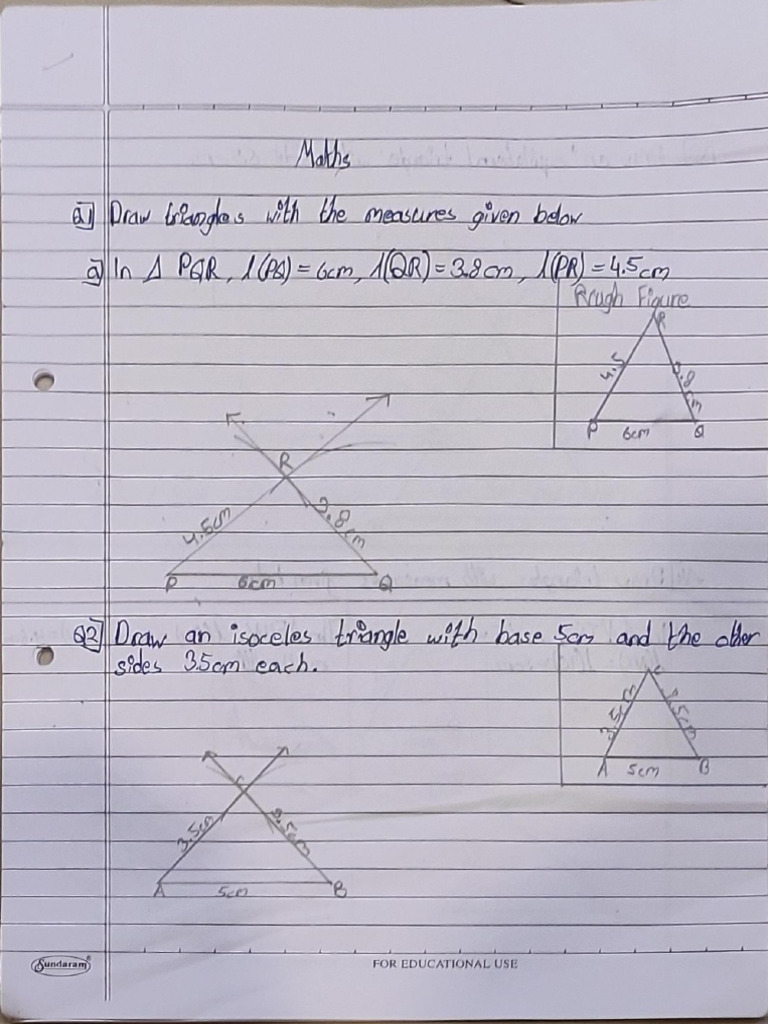 Maths
Q1] Draw triangles with the measures given below
a] In Δ PQR, l(PQ) = 6cm, l(QR) = 3.8cm, l(PR) = 4.5cm
Rough Figure
R
4.5
3.8cm
P
6cm
Q
R
4.5cm
3.8cm
P
6cm
Q
Q2] Draw an isoceles triangle with base 5cm and the other
sides 3.5cm each.
C
3.5cm
3.5cm
A
5cm
B
C
3.5cm
3.5cm
A
5cm
B
Sundaram®
FOR EDUCATIONAL USE